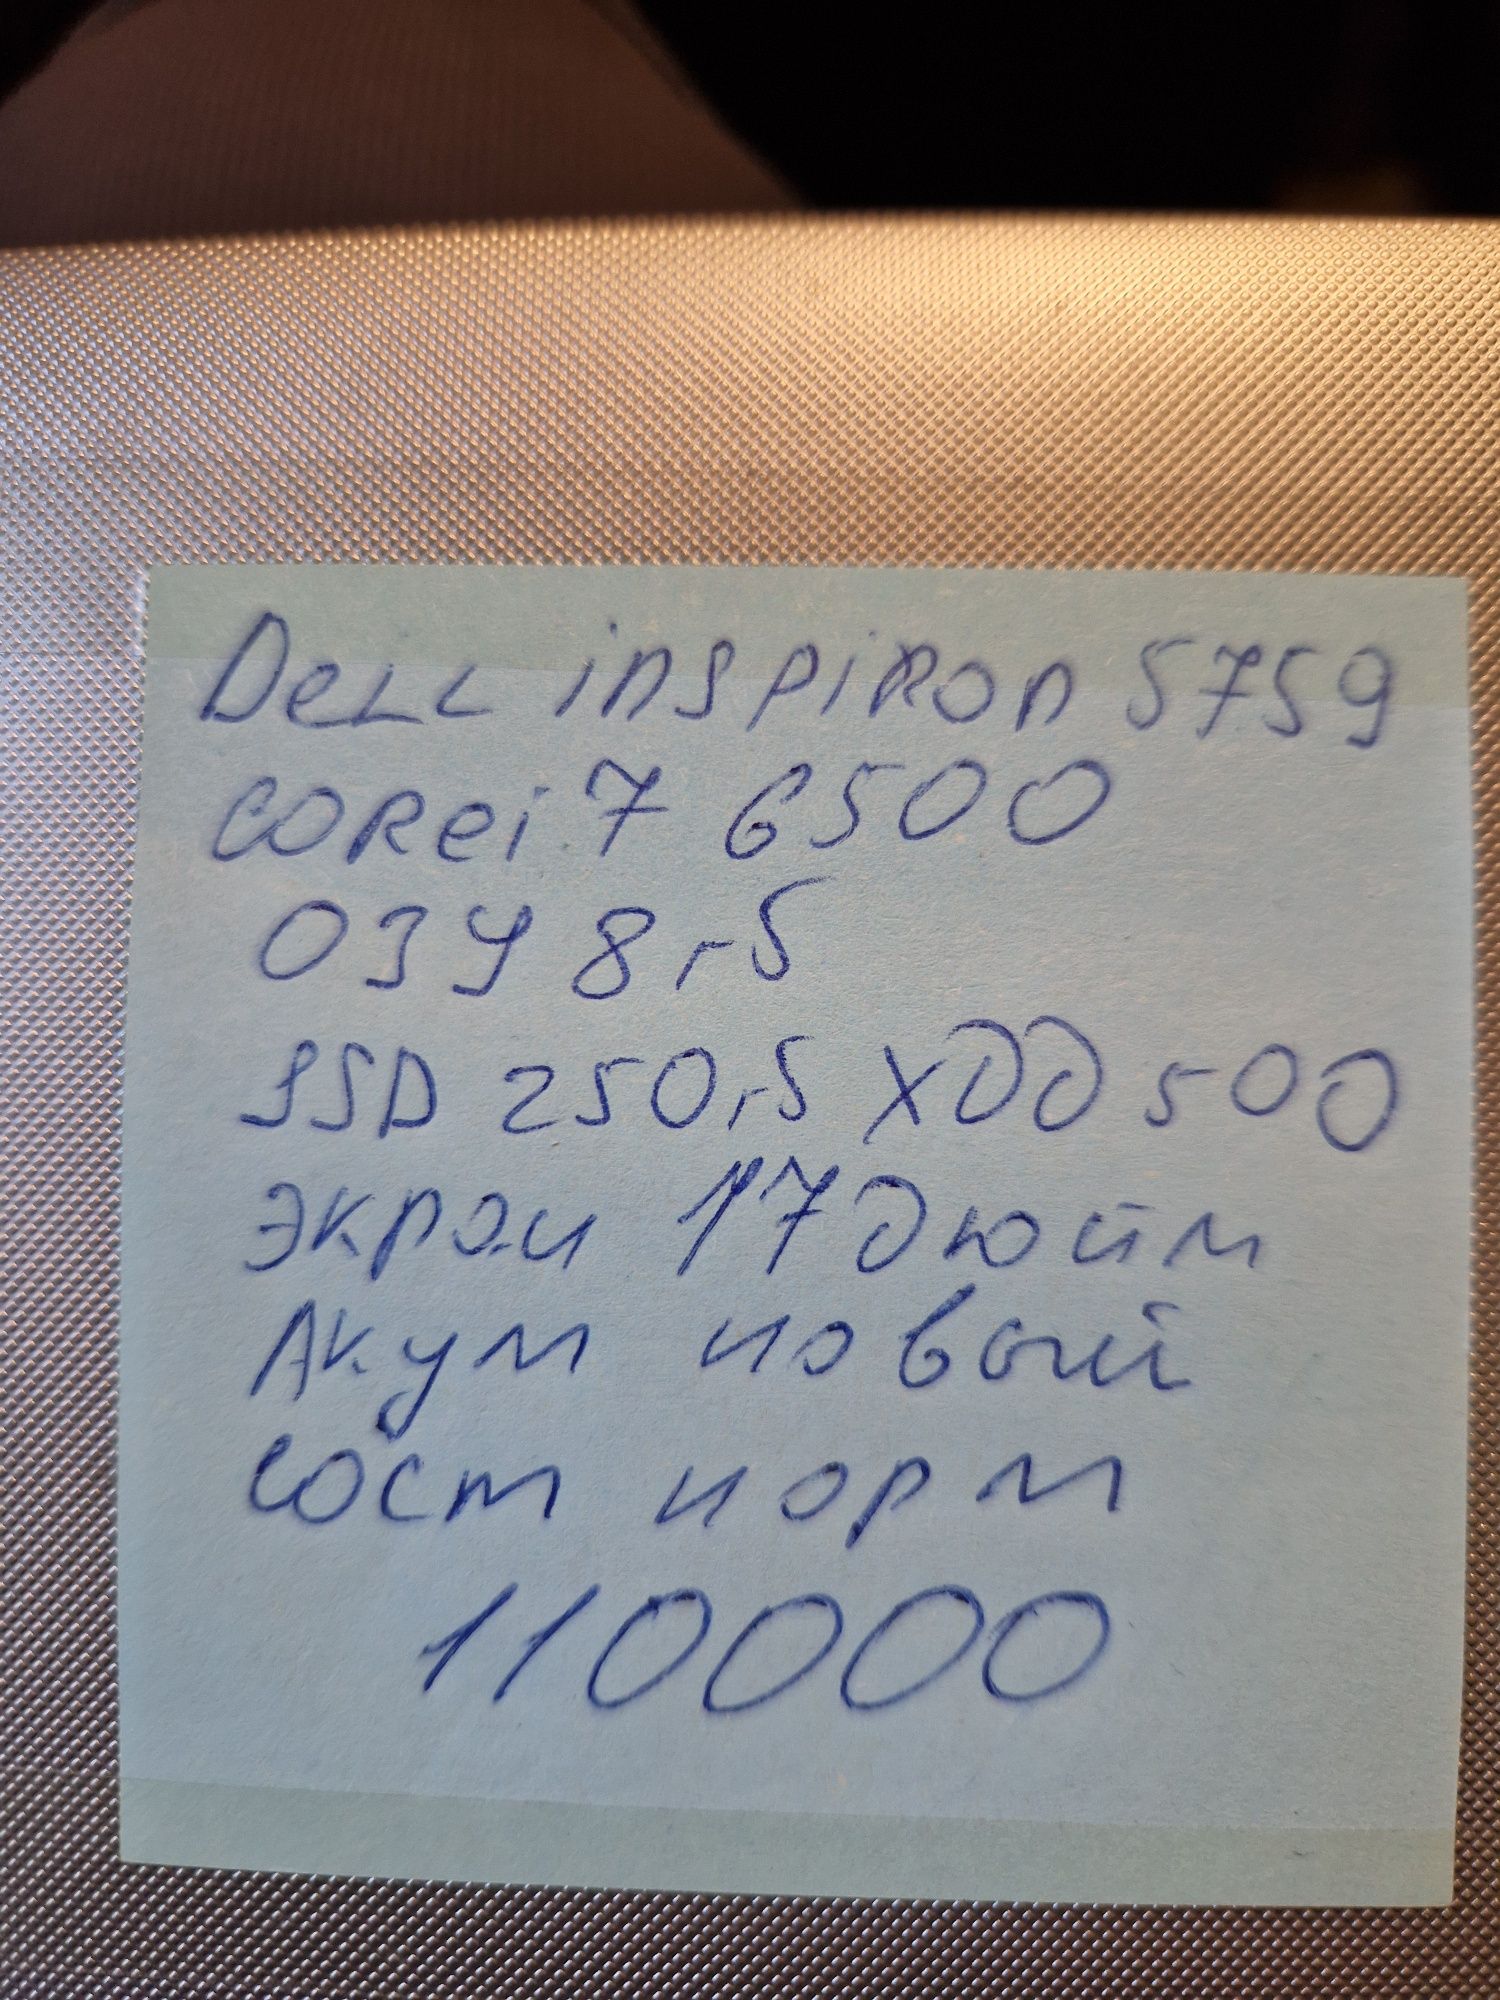 Dell inspiron 5759
Core i7 6500
ОЗУ 8 гб
SSD 250 гб ХДД 500
Экран 17 дюйм
Акум новый
Сост норм
110000